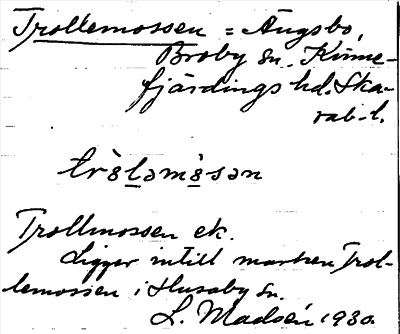 Trollemossen = Ängsbo,
Broby sn. Kinne-
fjärdings hd. Ska-
rab. l.
trò̀lləmò̀sən
Trollmossen ek.
Ligger intill marken Trol-
lemossen i Husaby sn.
L. Madsén 1930